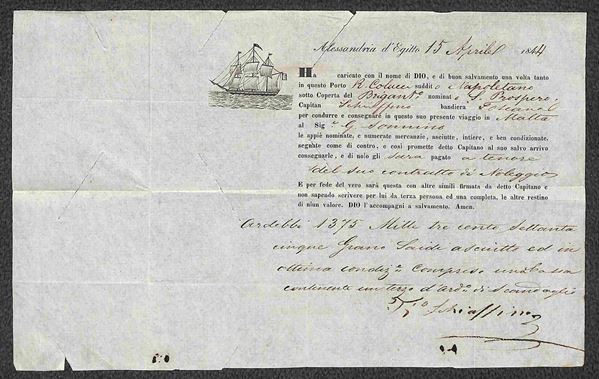 Alessandria d'Egitto 15 Aprile 1844
Ha caricato con il nome di DIO, e di buon salvamento una volta tanto
in questo Porto R. Colucci suddito Napoletano
sotto Coperta del Brigantº nominato S. Prospero
Capitan Schiaffino bandiera Toscana
per condurre e consegnare in questo suo presente viaggio in Malta
al Sigr G. Sonnino
le appiè nominate, e numerate mercanzie, asciutte, intere, e ben condizionate,
segnate come di contro, e così promette detto Capitano al suo salvo arrivo
consegnarle, e di nolo gli sara pagato a tenore
del suo contratto di Noleggio
E per fede del vero sarà questa con altre simili firmata da detto Capitano e
non sapendo scrivere per lui da terza persona ed una completa, le altre restino
di niun valore. DIO l'accompagni a salvamento. Amen.
Ardebbi 1375 Mille tre cento settanta
cinque Grano Saide asciutto ed in
ottima condizne compreso una Cassa
continente un terzo d'Ardº di Scandaglio
Schiaffino